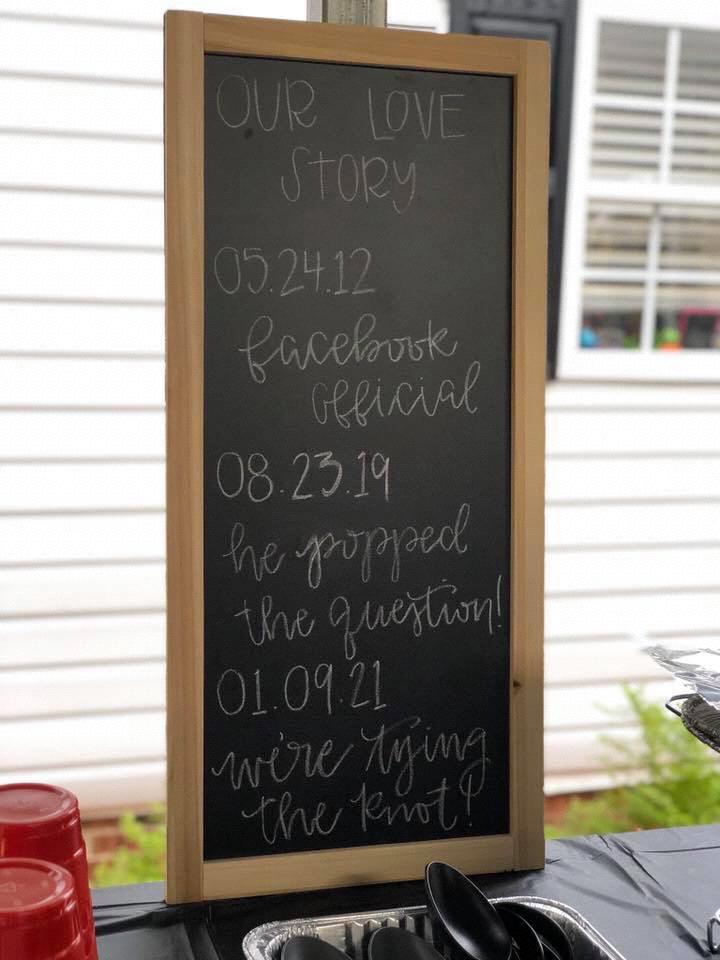 OUR LOVE
STORY
05.24.12
facebook
official
08.23.19
he popped
the question!
01.09.21
we're tying
the knot!